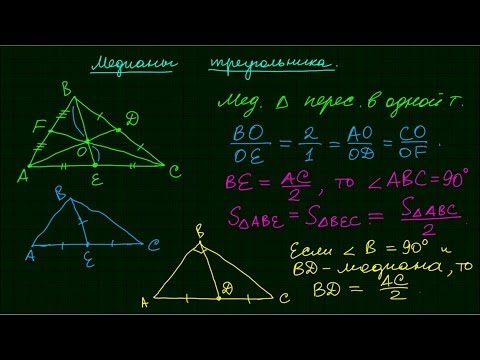 Медианы треугольника.
Мед. Δ перес. в одной т.
BO/OE = 2/1 = AO/OD = CO/OF.
BE = AC/2, то ∠ABC=90°
S△ABE = S△BEC = S△ABC/2.
Если ∠B = 90° и
BD-медиана, то
BD = AC/2.
B
F
D
O
A
E
C
B
A
E
C
B
A
D
C